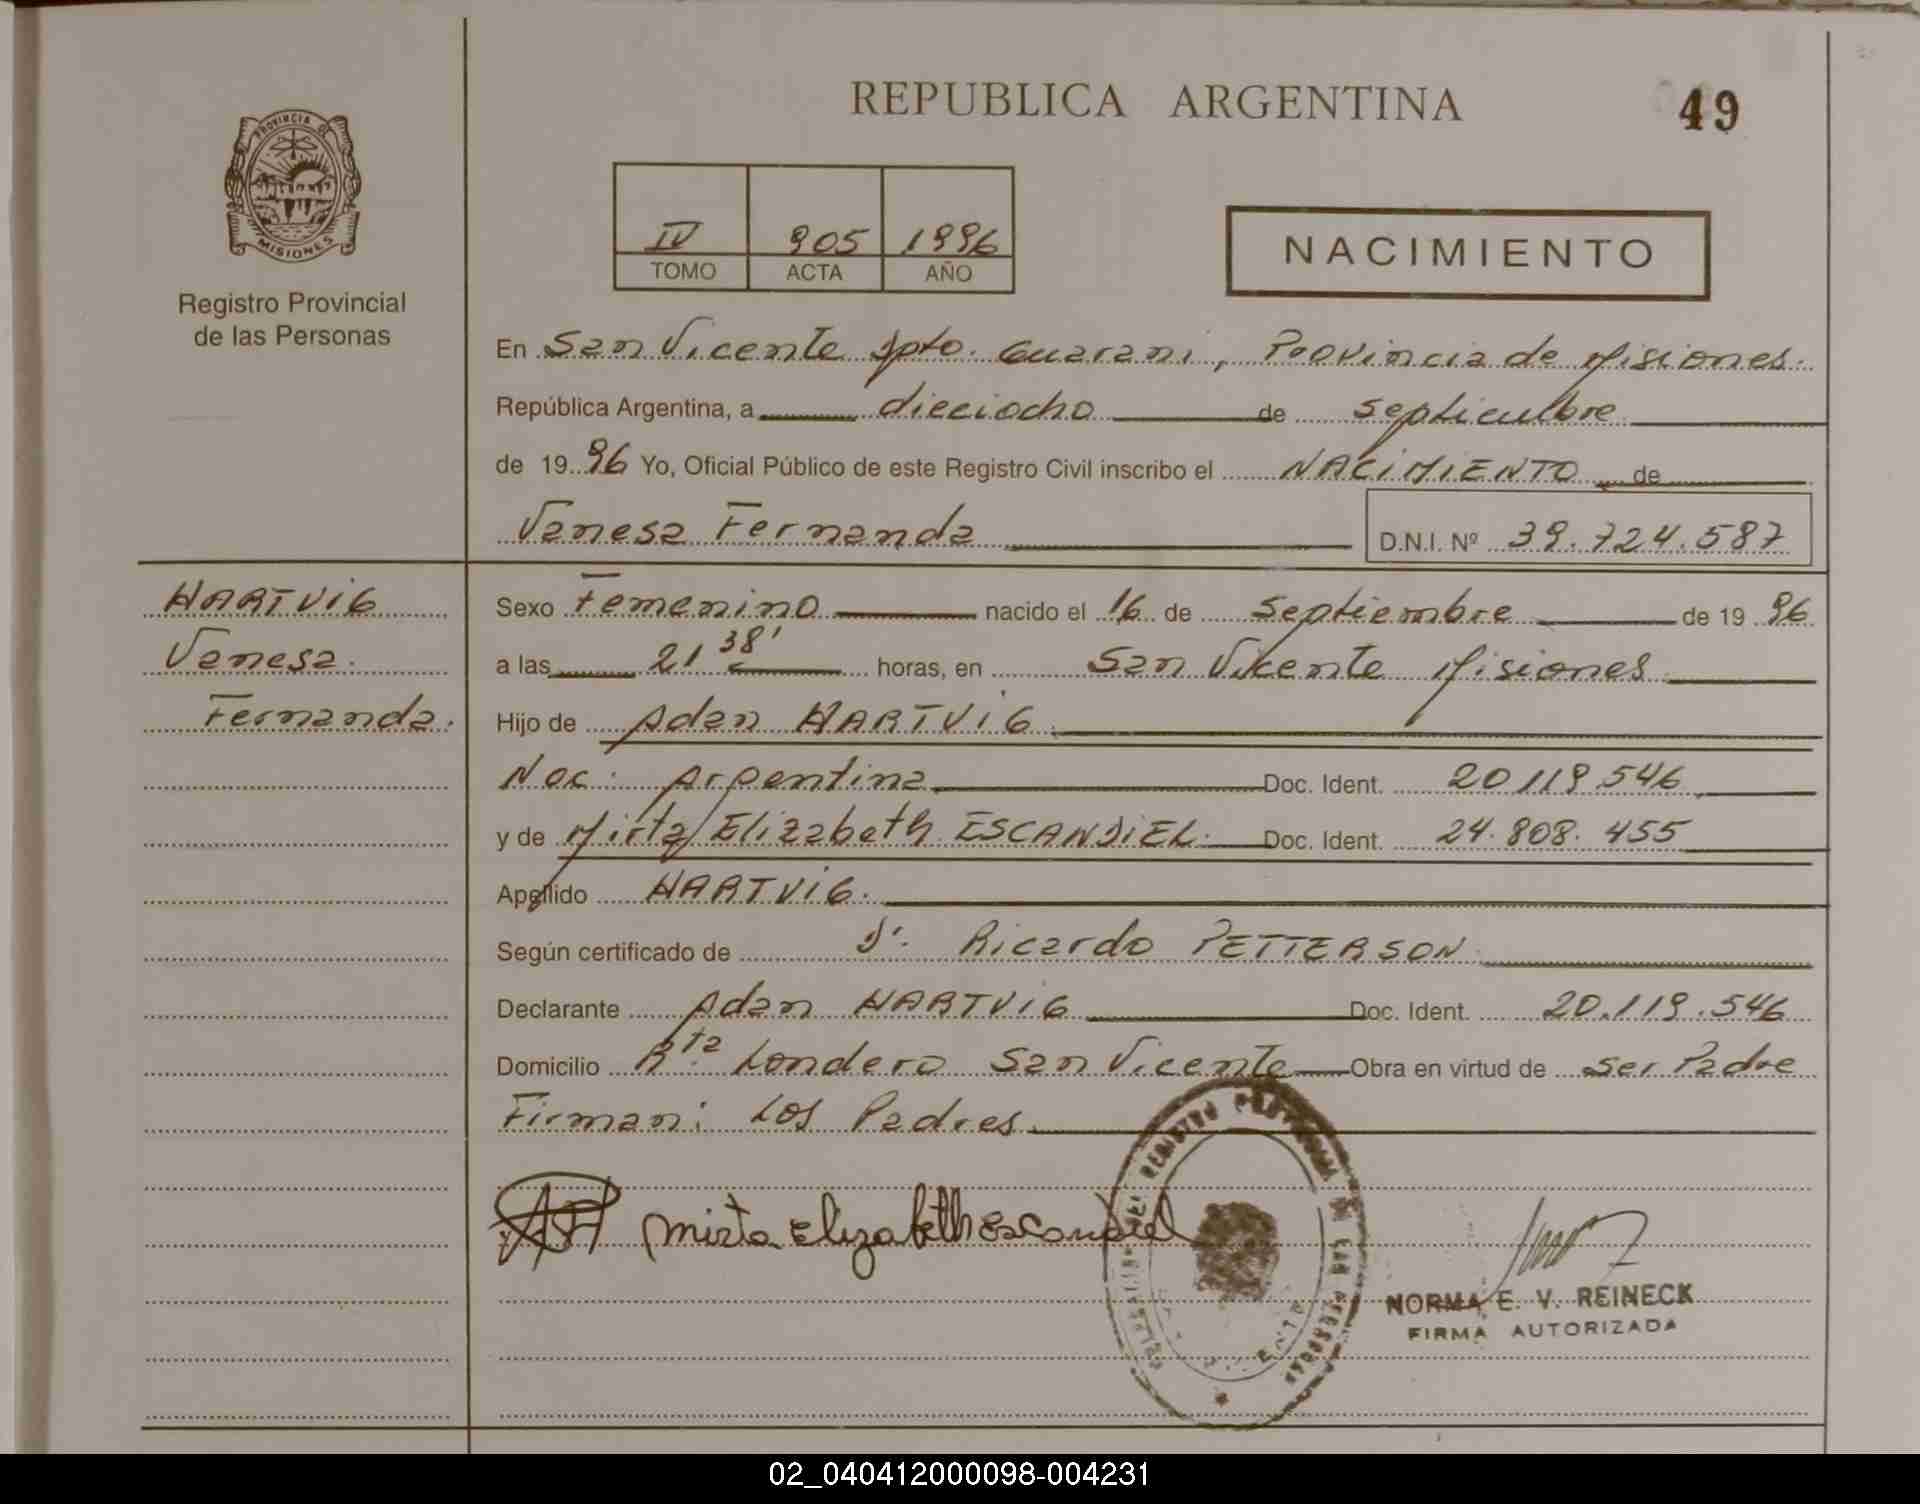 REPUBLICA ARGENTINA
49
PROVINCIA DE
MISIONES
Registro Provincial
de las Personas
IV 905 1996
TOMO ACTA AÑO
NACIMIENTO
En San Vicente Dpto. Guarani, Provincia de Misiones.
República Argentina, a dieciocho de septiembre
de 1996 Yo, Oficial Público de este Registro Civil inscribo el NACIMIENTO de
Vanesa Fernanda D.N.I. Nº 39.724.587
HARTVIG
Vanesa.
Fernanda.
Sexo Femenino nacido el 16 de Septiembre de 1996
a las 21 38' horas, en San Vicente Misiones
Hijo de Adan HARTVIG
Nac: Argentina Doc. Ident. 20119.546
y de Mirta Elizabeth ESCANDIEL. Doc. Ident. 24.808.455
Apellido HARTVIG.
Según certificado de Dr. Ricardo PETTERSON
Declarante Adan HARTVIG Doc. Ident. 20.119.546
Domicilio Rta Londero San Vicente Obra en virtud de ser Padre
Firman: Los Padres.
Mirta Elizabeth Escandiel
REGISTRO PROVINCIAL DE LAS PERSONAS
NORMA E. V. REINECK
FIRMA AUTORIZADA
02_040412000098-004231